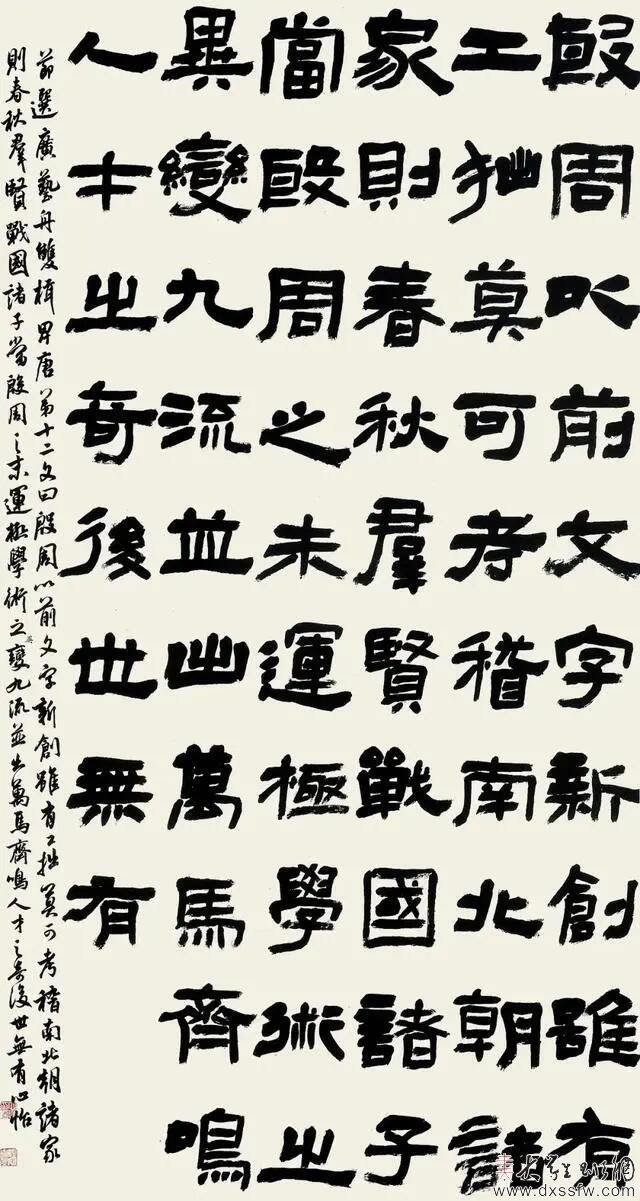 殷周以前文字新創雖有
工拙莫可考稽南北朝諸
家則春秋羣賢戰國諸子
當殷周之末運極學術之
異變九流並出萬馬齊鳴
人才之奇後世無有
節選廣藝舟雙楫卑唐第十二文曰殷周以前文字新創雖有工拙莫可考稽南北朝諸家
則春秋羣賢戰國諸子當殷周之末運極學術之變九流並出萬馬齊鳴人才之奇後世無有 心怡
異
www.dxssfw.com